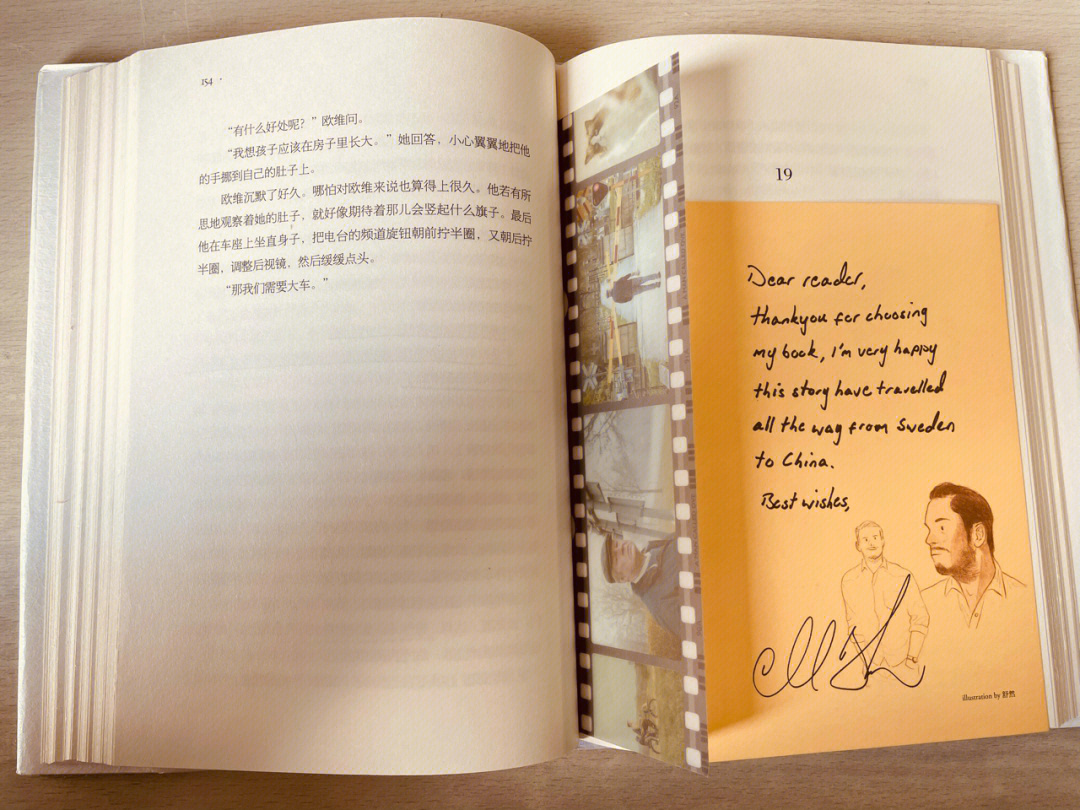 154
“有什么好处呢？”欧维问。
“我想孩子应该在房子里长大。”她回答，小心翼翼地把他
的手挪到自己的肚子上。
欧维沉默了好久。哪怕对欧维来说也算得上很久。他若有所
思地观察着她的肚子，就好像期待着那儿会竖起什么旗子。最后
他在车座上坐直身子，把电台的频道旋钮朝前拧半圈，又朝后拧
半圈，调整后视镜，然后缓缓点头。
“那我们需要大车。”
19
Dear reader,
thankyou for choosing
my book, I'm very happy
this story have travelled
all the way from Sweden
to China.
Best wishes,
illustration by 舒然